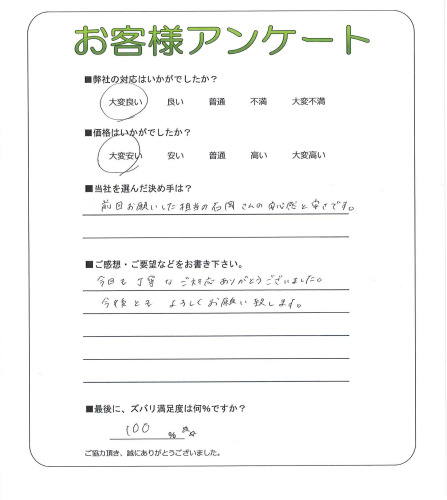 お客様アンケート
■弊社の対応はいかがでしたか?
大変良い 良い 普通 不満 大変不満
■価格はいかがでしたか?
大変安い 安い 普通 高い 大変高い
■当社を選んだ決め手は?
前回お願いした担当の石岡さんの安心感と安さです。
■ご感想・ご要望などをお書き下さい。
今日も丁寧なご対応ありがとうございました。
今後とも よろしくお願い致します。
■最後に、ズバリ満足度は何%ですか?
100 %☆☆
ご協力頂き、誠にありがとうございました。